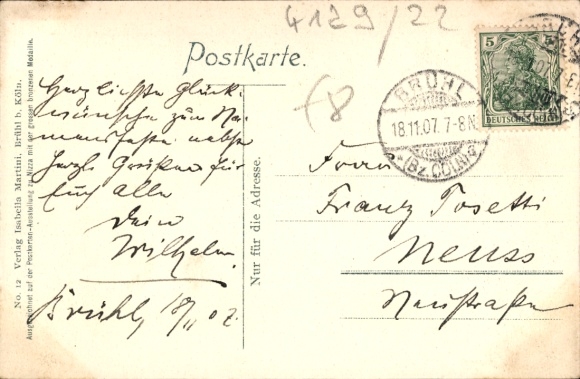 4129/22
Postkarte.
Herzlichste Glück-
wünsche zum Na-
mensfeste nebst
herzl. Grüßen für
Euch alle
Dein
Wilhelm.
Brühl, 18/11 07.
£8
BRÜHL
18.11.07. 7-8N.
(Bz. CÖLN)
5
DEUTSCHES REICH
Frau
Franz Tosetti
Neuss
Neustraße
Nur für die Adresse.
No. 12 Verlag Isabella Martini, Brühl b. Köln.
Ausgezeichnet auf der Postkarten-Ausstellung zu Nizza mit der grossen bronzenen Medaille.